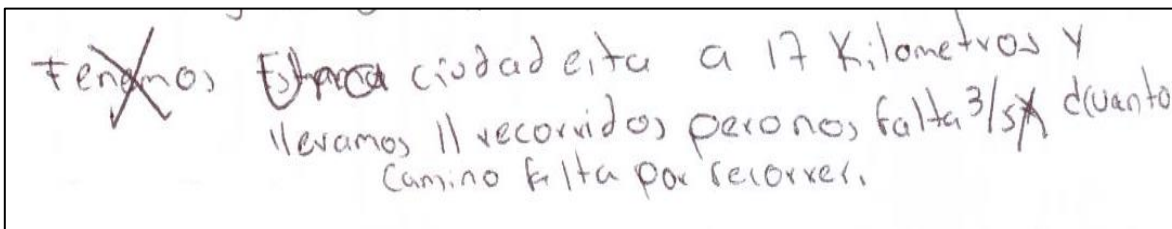 ciudad eita a 17 Kilometros y
llevamos 11 recorridos pero nos falta 3/5 cuanto
camino falta por recorrer.